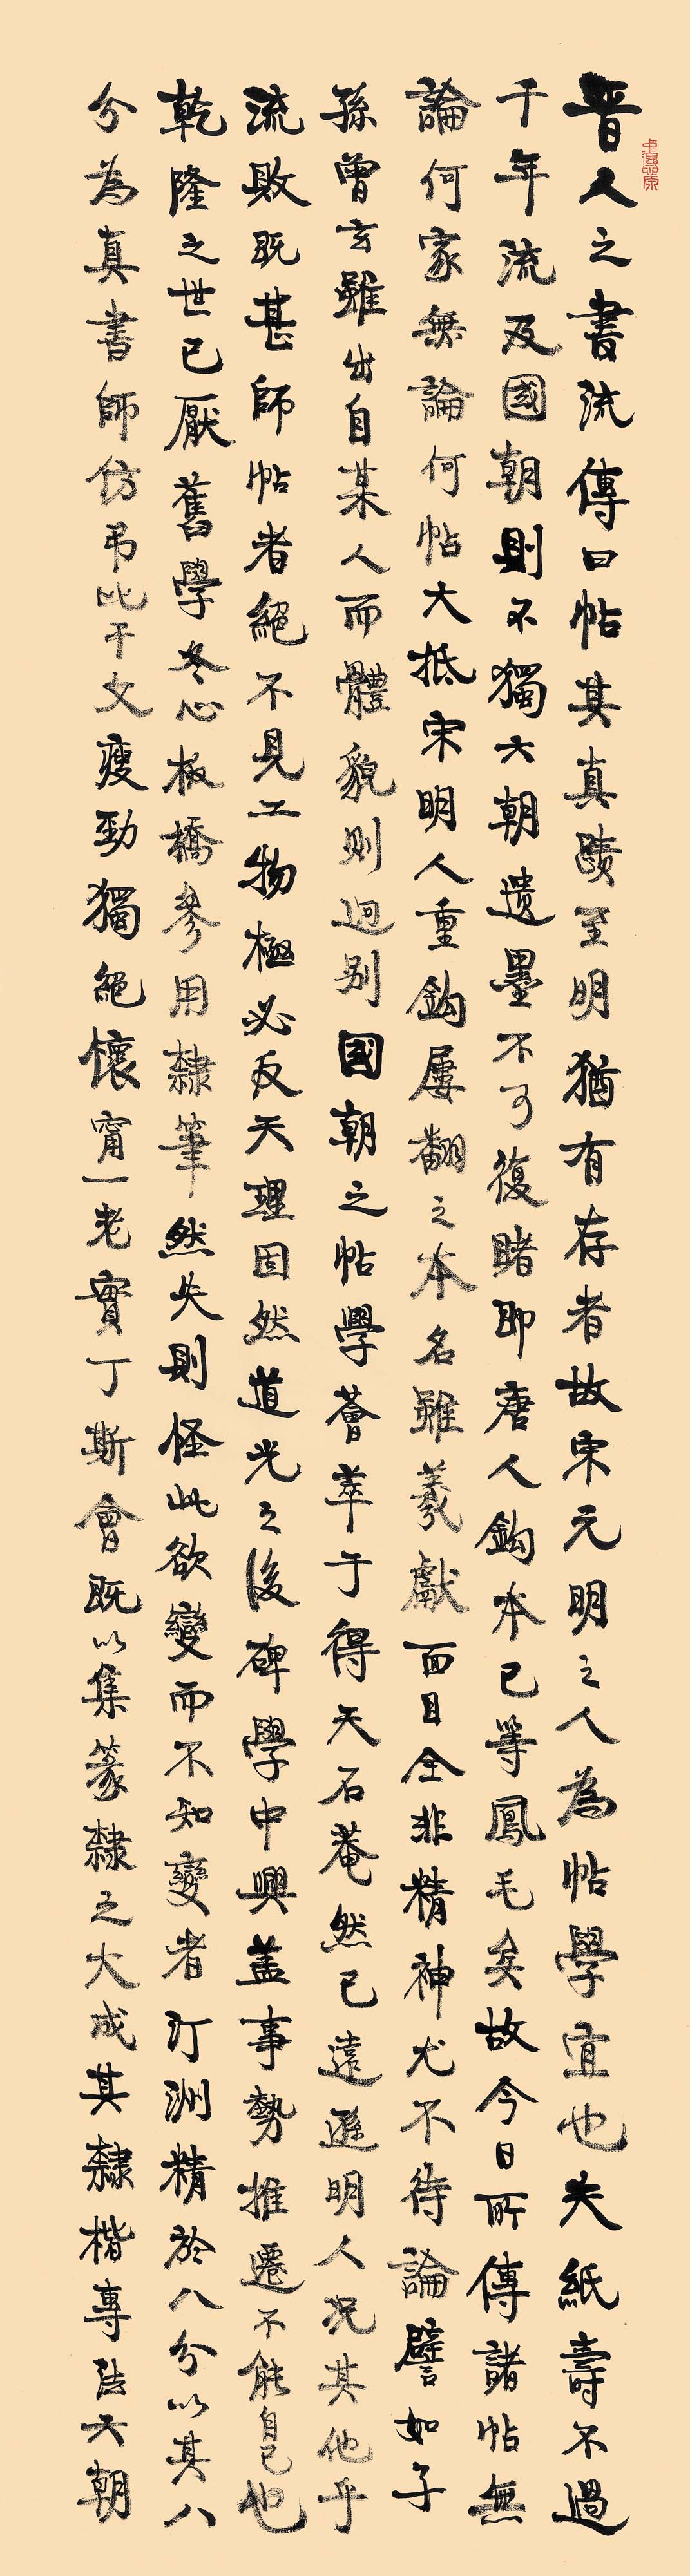 晋人之書流傳曰帖其真蹟至明猶有存者故宋元明之人為帖學宜也夫紙壽不過
千年流及國朝則不獨六朝遺墨不可復睹即唐人鈎本已等鳳毛矣故今日所傳諸帖無
論何家無論何帖大抵宋明人重鈎屢翻之本名雖羲獻面目全非精神尤不待論譬如子
孫曾玄雖出自某人而體貌則迥别國朝之帖學薈萃于得天石菴然已遠遜明人況其他乎
流敗既甚師帖者絕不見工物極必反天理固然道光之後碑學中興蓋事勢推遷不能自已也
乾隆之世已厭舊學冬心板橋參用隸筆然失則怪此欲變而不知變者汀洲精於八分以其八
分為真書師仿弔比干文瘦勁獨絕懷甯一老實丁斯會既以集篆隸之大成其隸楷專法六朝